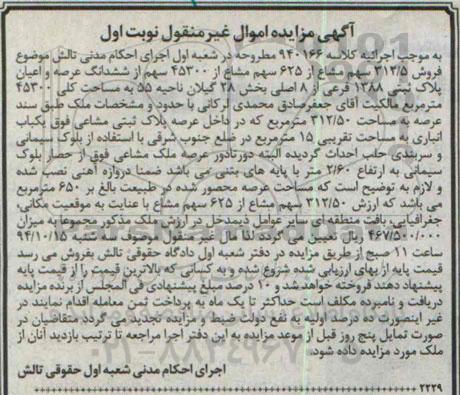 آگهی مزایده اموال غیر منقول نوبت اول
به موجب اجرائیه کلاسه ۹۴۰۱۶۶ مطروحه در شعبه اول اجرای احکام مدنی تالش موضوع
فروش ۳۱۲/۵ سهم مشاع از ۶۲۵ سهم مشاع از ۴۵۳۰۰ سهم از ششدانگ عرصه و اعیان
پلاک ثبتی ۱۲۸۸ فرعی از ۸ اصلی بخش ۲۸ گیلان ناحیه ۵۵ به مساحت کلی ۴۵۳۰۰
مترمربع مالکیت آقای جعفرصادق محمدی لرکانی با حدود و مشخصات ملک طبق سند
عرصه به مساحت ۳۱۲/۵۰ مترمربع که در داخل عرصه پلاک ثبتی مشاعی فوق یکباب
انباری به مساحت تقریبی ۱۵ مترمربع در ضلع جنوب شرقی با استفاده از بلوک سیمانی
و سربندی حلب احداث گردیده البته دورتادور عرصه ملک مشاعی فوق از حصار بلوک
سیمانی به ارتفاع ۲/۶۰ متر با پایه های بتنی می باشد ضمنا دروازه آهنی نصب شده
و لازم به توضیح است که مساحت عرصه محصور شده در طبیعت بالغ بر ۶۵۰ مترمربع
می باشد که ارزش ۳۱۲/۵۰ سهم مشاع از ۶۲۵ سهم مشاع با عنایت به موقعیت مکانی،
جغرافیایی، بافت منطقه ای سایر عوامل ذیمدخل در ارزش ملک مذکور مجموعا به میزان
۴۶۷/۵۰۰/۰۰۰ ریال تعیین می گردد لذا مال غیر منقول موصوف سه شنبه ۹۴/۱۰/۱۵
ساعت ۱۱ صبح از طریق مزایده در دفتر شعبه اول دادگاه حقوقی تالش بفروش می رسد
قیمت پایه از بهای ارزیابی شده شروع شده و به کسانی که بالاترین قیمت را از قیمت پایه
پیشنهاد دهند فروخته خواهد شد و ۱۰ درصد مبلغ پیشنهادی فی المجلس از برنده مزایده
دریافت و نامبرده مکلف است حداکثر تا یک ماه به پرداخت ثمن معامله اقدام نمایند در
غیر اینصورت ده درصد اولیه به نفع دولت ضبط و مزایده تجدید می گردد متقاضیان در
صورت تمایل پنج روز قبل از موعد مزایده به این دفتر اجرا مراجعه تا ترتیب بازدید آنان از
ملک مورد مزایده داده شود.
اجرای احکام مدنی شعبه اول حقوقی تالش
۲۲۲۹